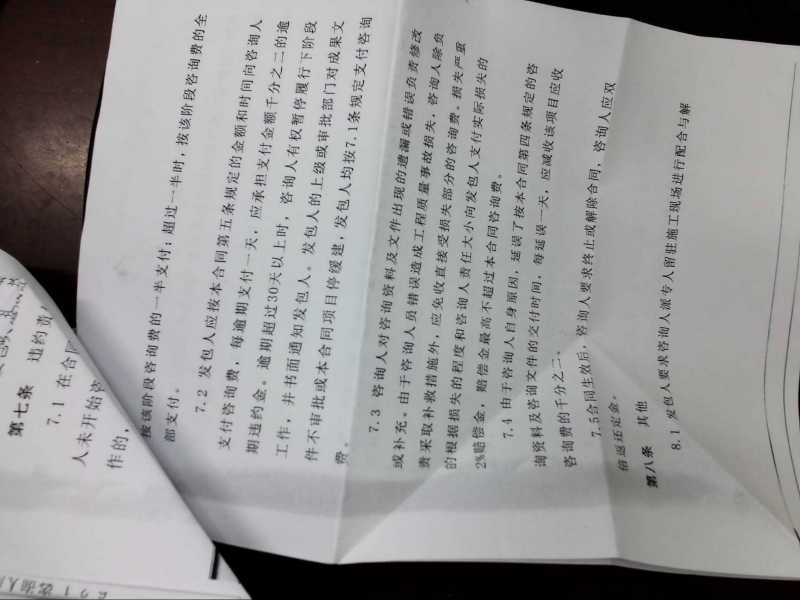 第七条 违约责
7.1 在合同
人未开始咨
作的,
按该阶段咨询费的一半支付;超过一半时,按该阶段咨询费的全
部支付。
7.2 发包人应按本合同第五条规定的金额和时间向咨询人
支付咨询费,每逾期支付一天,应承担支付金额千分之二的逾
期违约金。逾期超过30天以上时,咨询人有权暂停履行下阶段
工作,并书面通知发包人。发包人的上级或审批部门对成果文
件不审批或本合同项目停缓建,发包人均按7.1条规定支付咨询
费。
7.3 咨询人对咨询资料及文件出现的遗漏或错误负责修改
或补充。由于咨询人员错误造成工程质量事故损失,咨询人除负
责采取补救措施外,应免收直接受损失部分的咨询费。损失严重
的根据损失的程度和咨询人责任大小向发包人支付实际损失的
2%赔偿金,赔偿金最高不超过本合同咨询费。
7.4 由于咨询人自身原因,延误了按本合同第四条规定的咨
询资料及咨询文件的交付时间,每延误一天,应减收该项目应收
咨询费的千分之二。
7.5合同生效后,咨询人要求终止或解除合同,咨询人应双
倍返还定金。
第八条 其他
8.1 发包人要求咨询人派专人留驻施工现场进行配合与解